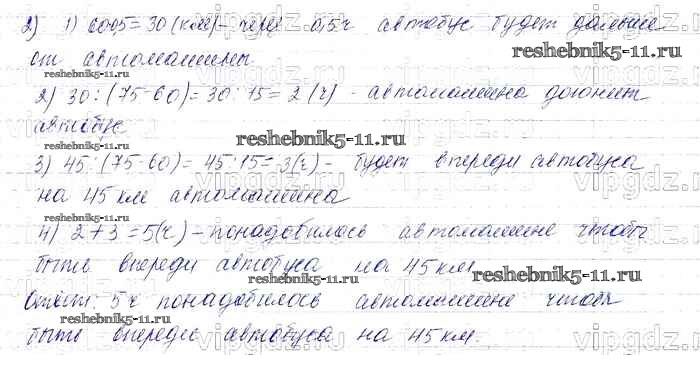 2) 1) 60·0,5=30 (км) - через 0,5ч автобус будет дальше
от автомашины.
reshebnik5-11.ru
reshebnik5-11.ru
2) 30:(75-60)=30:15=2 (ч) - автомашина догонит
автобус
reshebnik5-11.ru
3) 45:(75-60)=45:15=3(ч) - будет впереди автобуса
на 45 км автомашина
reshebnik5-11.ru
reshebnik5-11.ru
4) 2+3=5(ч) - понадобилось автомашине чтобы
быть впереди автобуса на 45 км.
reshebnik5-11.ru
Ответ: 5ч понадобилось автомашине чтобы
reshebnik5-11.ru
быть впереди автобуса на 45 км.
reshebnik5-11.ru
vipgdz.ru
vipgdz.ru
vipgdz.ru
vipgdz.ru